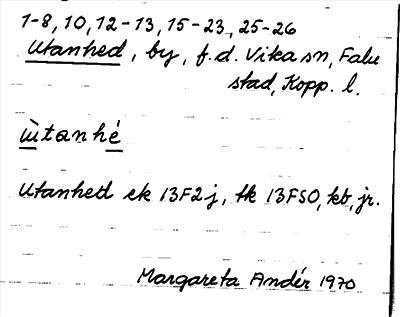 1-8, 10, 12-13, 15-23, 25-26
Utanhed, by, f.d. Vika sn, Falu
stad, Kopp. l.
ùtanhé
Utanhed ek 13F2j, tk 13FSO, kb, jr.
Margareta Andér 1970